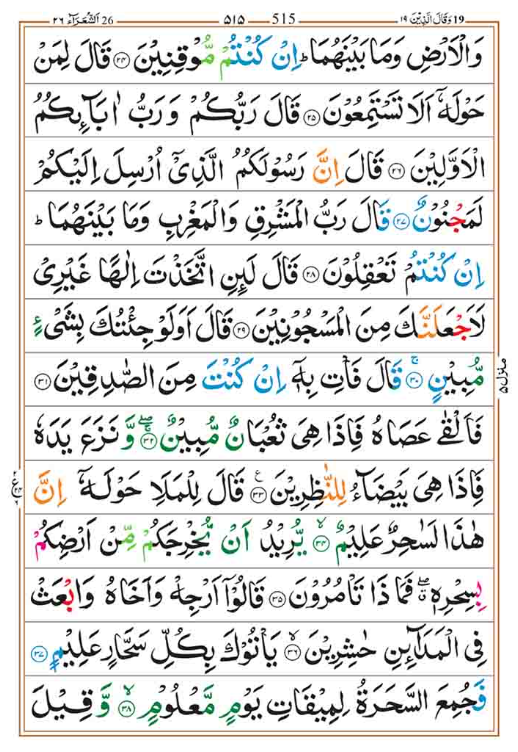 ١٩ وَقَالَ الَّذِیْنَ 19 515 ۵۱۵ اَلشُّعَرَآء 26 ٢٦
وَالْاَرْضِ وَمَا بَیْنَهُمَا ؕ اِنْ كُنْتُمْ مُّوْقِنِیْنَ ﴿۲۴﴾ قَالَ لِمَنْ
حَوْلَهٗۤ اَلَا تَسْتَمِعُوْنَ ﴿۲۵﴾ قَالَ رَبُّكُمْ وَرَبُّ اٰبَآىِٕكُمُ
الْاَوَّلِیْنَ ﴿۲۶﴾ قَالَ اِنَّ رَسُوْلَكُمُ الَّذِیْۤ اُرْسِلَ اِلَیْكُمْ
لَمَجْنُوْنٌ ﴿۲۷﴾ قَالَ رَبُّ الْمَشْرِقِ وَالْمَغْرِبِ وَمَا بَیْنَهُمَا ؕ
اِنْ كُنْتُمْ تَعْقِلُوْنَ ﴿۲۸﴾ قَالَ لَىِٕنِ اتَّخَذْتَ اِلٰهًا غَیْرِیْ
لَاَجْعَلَنَّكَ مِنَ الْمَسْجُوْنِیْنَ ﴿۲۹﴾ قَالَ اَوَلَوْ جِئْتُكَ بِشَیْءٍ
مُّبِیْنٍ ﴿۳۰﴾ۚ قَالَ فَاْتِ بِهٖۤ اِنْ كُنْتَ مِنَ الصّٰدِقِیْنَ ﴿۳۱﴾
منزل ۵
فَاَلْقٰی عَصَاهُ فَاِذَا هِیَ ثُعْبَانٌ مُّبِیْنٌ ﴿۳۲﴾ۚۖ وَّنَزَعَ یَدَهٗ
فَاِذَا هِیَ بَیْضَآءُ لِلنّٰظِرِیْنَ ﴿۳۳﴾ قَالَ لِلْمَلَاِ حَوْلَهٗۤ اِنَّ
هٰذَا لَسٰحِرٌ عَلِیْمٌ ﴿۳۴﴾ۙ یُّرِیْدُ اَنْ یُّخْرِجَكُمْ مِّنْ اَرْضِكُمْ
بِسِحْرِهٖ ۖۗ فَمَا ذَا تَاْمُرُوْنَ ﴿۳۵﴾ قَالُوْۤا اَرْجِهْ وَاَخَاهُ وَابْعَثْ
فِی الْمَدَآىِٕنِ حٰشِرِیْنَ ﴿۳۶﴾ۙ یَاْتُوْكَ بِكُلِّ سَحَّارٍ عَلِیْمٍ ﴿۳۷﴾
فَجُمِعَ السَّحَرَةُ لِمِیْقَاتِ یَوْمٍ مَّعْلُوْمٍ ﴿۳۸﴾ۙ وَّقِیْلَ